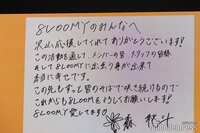 8LOOMYのみんなへ
沢山応援してくれてありがとうございます!
この活動を通して、メンバーの皆、スタッフの皆様
そして8LOOMYに出会う事が出来て
本当に幸せです。
この先もずっと皆のそばで咲き続けるので
これからも8LOOMをよろしくお願いします!
8LOOMY愛してます!